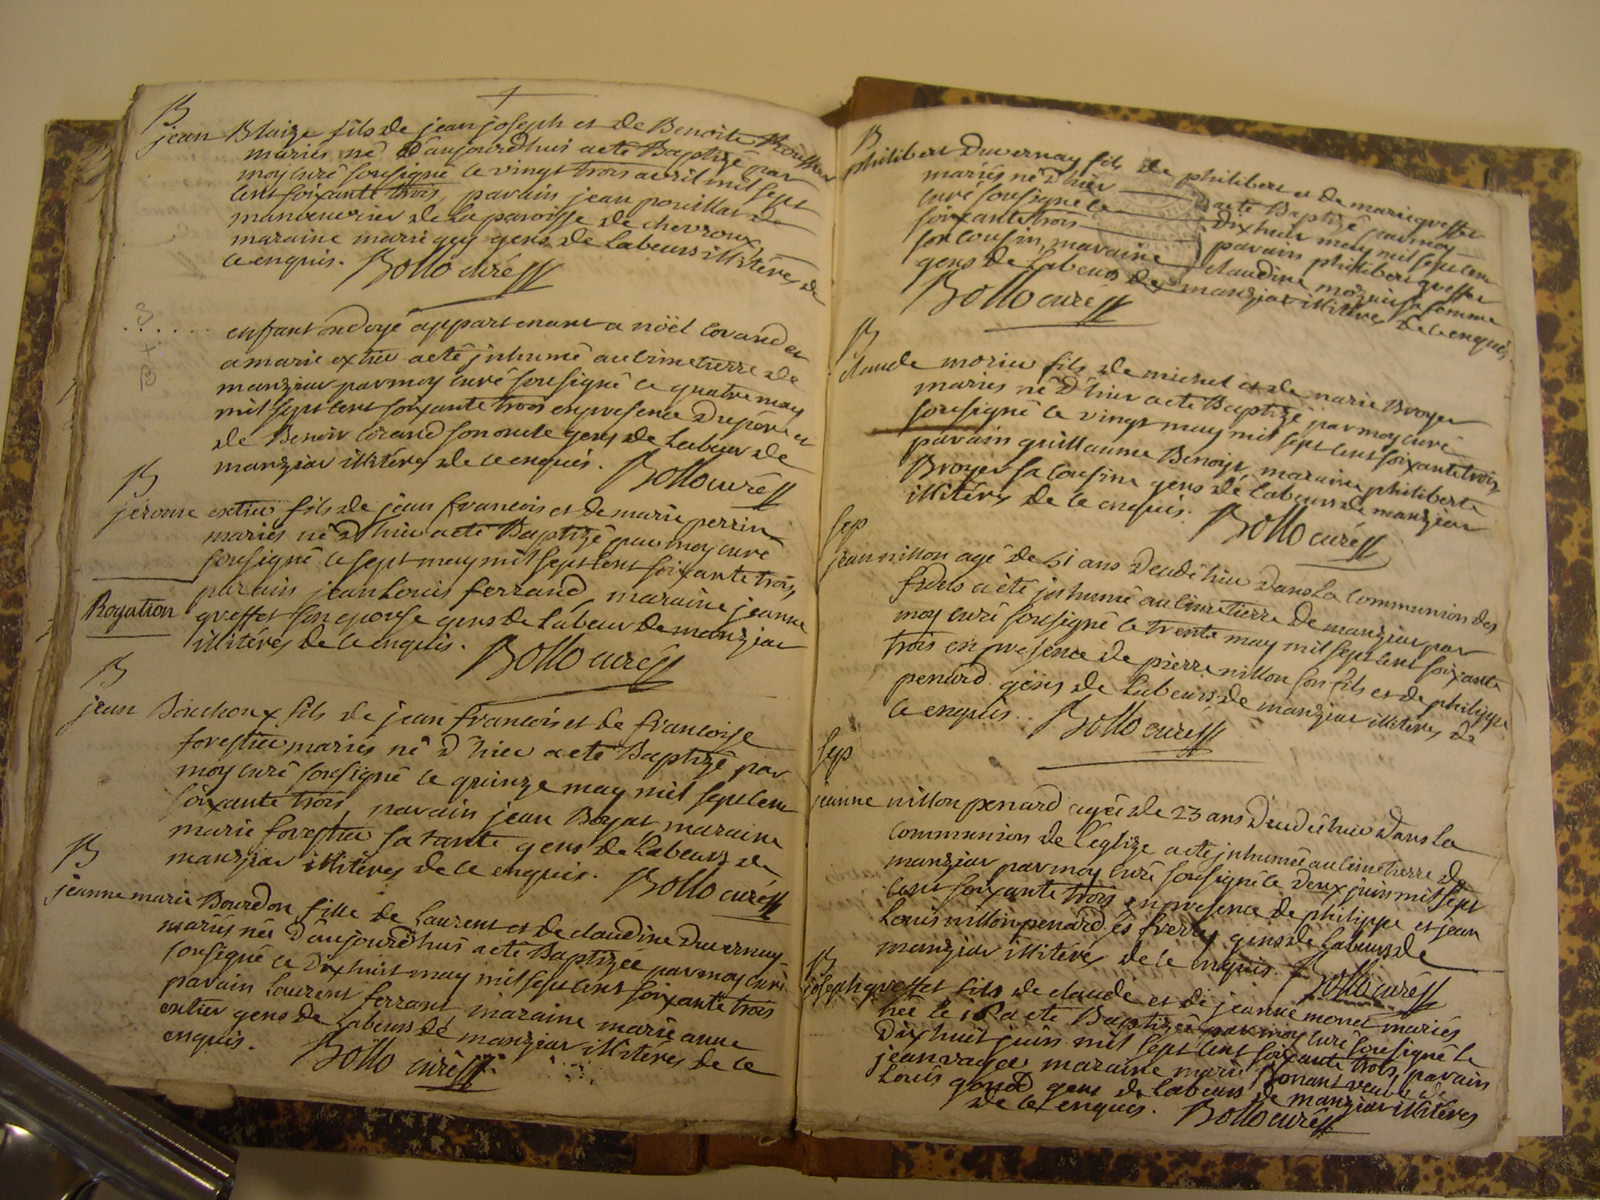 B
jean Blaize fils de jean joseph et de Benoite
mariés né d'aujourdhui a eté Baptizé par
moy curé sousigné le vingt trois avril mil sept
cent soixante trois, parain jean pouillat de
manouvrier de la paroisse de chevroux
maraine marie guy gens de labeurs illiterés de
ce enquis. Bollo curé
enfant ondoyé appartenant a nöel Corand et
a marie extier a eté inhumé au cimetierre de
manziat par moy curé sousigné le quatre may
mil sept cent soixante trois en presence du pére et
de Benoit Corand son oncle gens de labeur de
manziat illiterés de ce enquis. Bollo curé
B
jerome extier fils de jean francois et de marie perrin
mariés né d'hier a eté Baptizé par moy curé
sousigné le sept may mil sept cent soixante trois,
parain jean Louis ferrand, maraine jeanne
Rogation
greffet son epouse gens de labeur de manziat
illiterés de ce enquis. Bollo curé
B
jean Bouchoux fils de jean francois et de francoise
forestier mariés né d'hier a eté Baptizé par
moy curé sousigné le quinze may mil sept cent
soixante trois, parain jean Boyat maraine
marie forestier sa tante gens de labeurs de
manziat illiterés de ce enquis. Bollo curé
B
jeanne marie Bourdon fille de Laurent et de claudine Duvernay
mariés née d'aujourdhui a eté Baptizée par moy curé
sousigné le dix huit may mil sept cent soixante trois
parain Laurent ferrant maraine marie anne
extier gens de labeurs de manziat illiterés de ce
enquis. Bollo curé
B
philibert Duvernay fils de philibert et de marie greffet
mariés né d'hier a eté Baptizé par moy
curé sousigné le dix huit may mil sept cent
soixante trois parain philibert greffet
son cousin, maraine claudine femme
gens de labeurs de manziat illiterés de ce enquis.
Bollo curé
B
claude morier fils de michel et de marie Broyer
mariés né d'hier a eté Baptizé par moy curé
sousigné le vingt may mil sept cent soixante trois
parain guillaume Benoist, maraine philiberte
Broyer sa cousine gens de labeurs de manziat
illiterés de ce enquis. Bollo curé
Sep
jean nillon agé de 61 ans decedé hier dans la communion des
fideles a eté inhumé au cimetierre de manziat par
moy curé sousigné le trente may mil sept cent soixante
trois en presence de pierre nillon son fils et de philippe
penard gens de labeurs de manziat illiterés de
ce enquis. Bollo curé
Sep
jeanne nillon penard agée de 23 ans decedée hier dans la
communion de l'églize a eté inhumée au cimetierre de
manziat par moy curé sousigné le deux juin mil sept
cent soixante trois en presence de philippe et jean
Louis nillon penard es freres gens de labeurs de
manziat illiterés de ce enquis. Bollo curé
B
joseph greffet fils de claude et de jeanne monet mariés
né le 18 a eté Baptizé par moy curé sousigné le
dix huit juin mil sept cent soixante trois, parain
jean maraine marie veuve de
Louis gens de labeurs de manziat illiterés
de ce enquis. Bollo curé